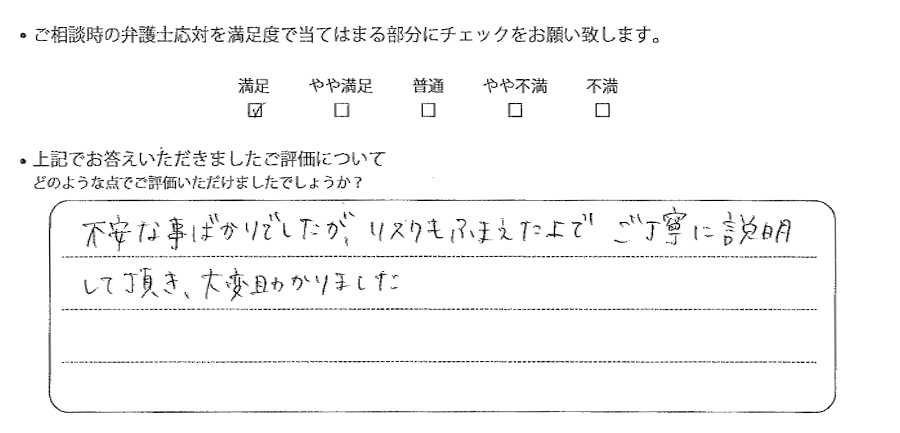 • ご相談時の弁護士応対を満足度で当てはまる部分にチェックをお願い致します。
満足 やや満足 普通 やや不満 不満
☑ ☐ ☐ ☐ ☐
• 上記でお答えいただきましたご評価について
どのような点でご評価いただけましたでしょうか？
不安な事ばかりでしたが、リスクもふまえた上で ご丁寧に説明
して頂き、大変助かりました